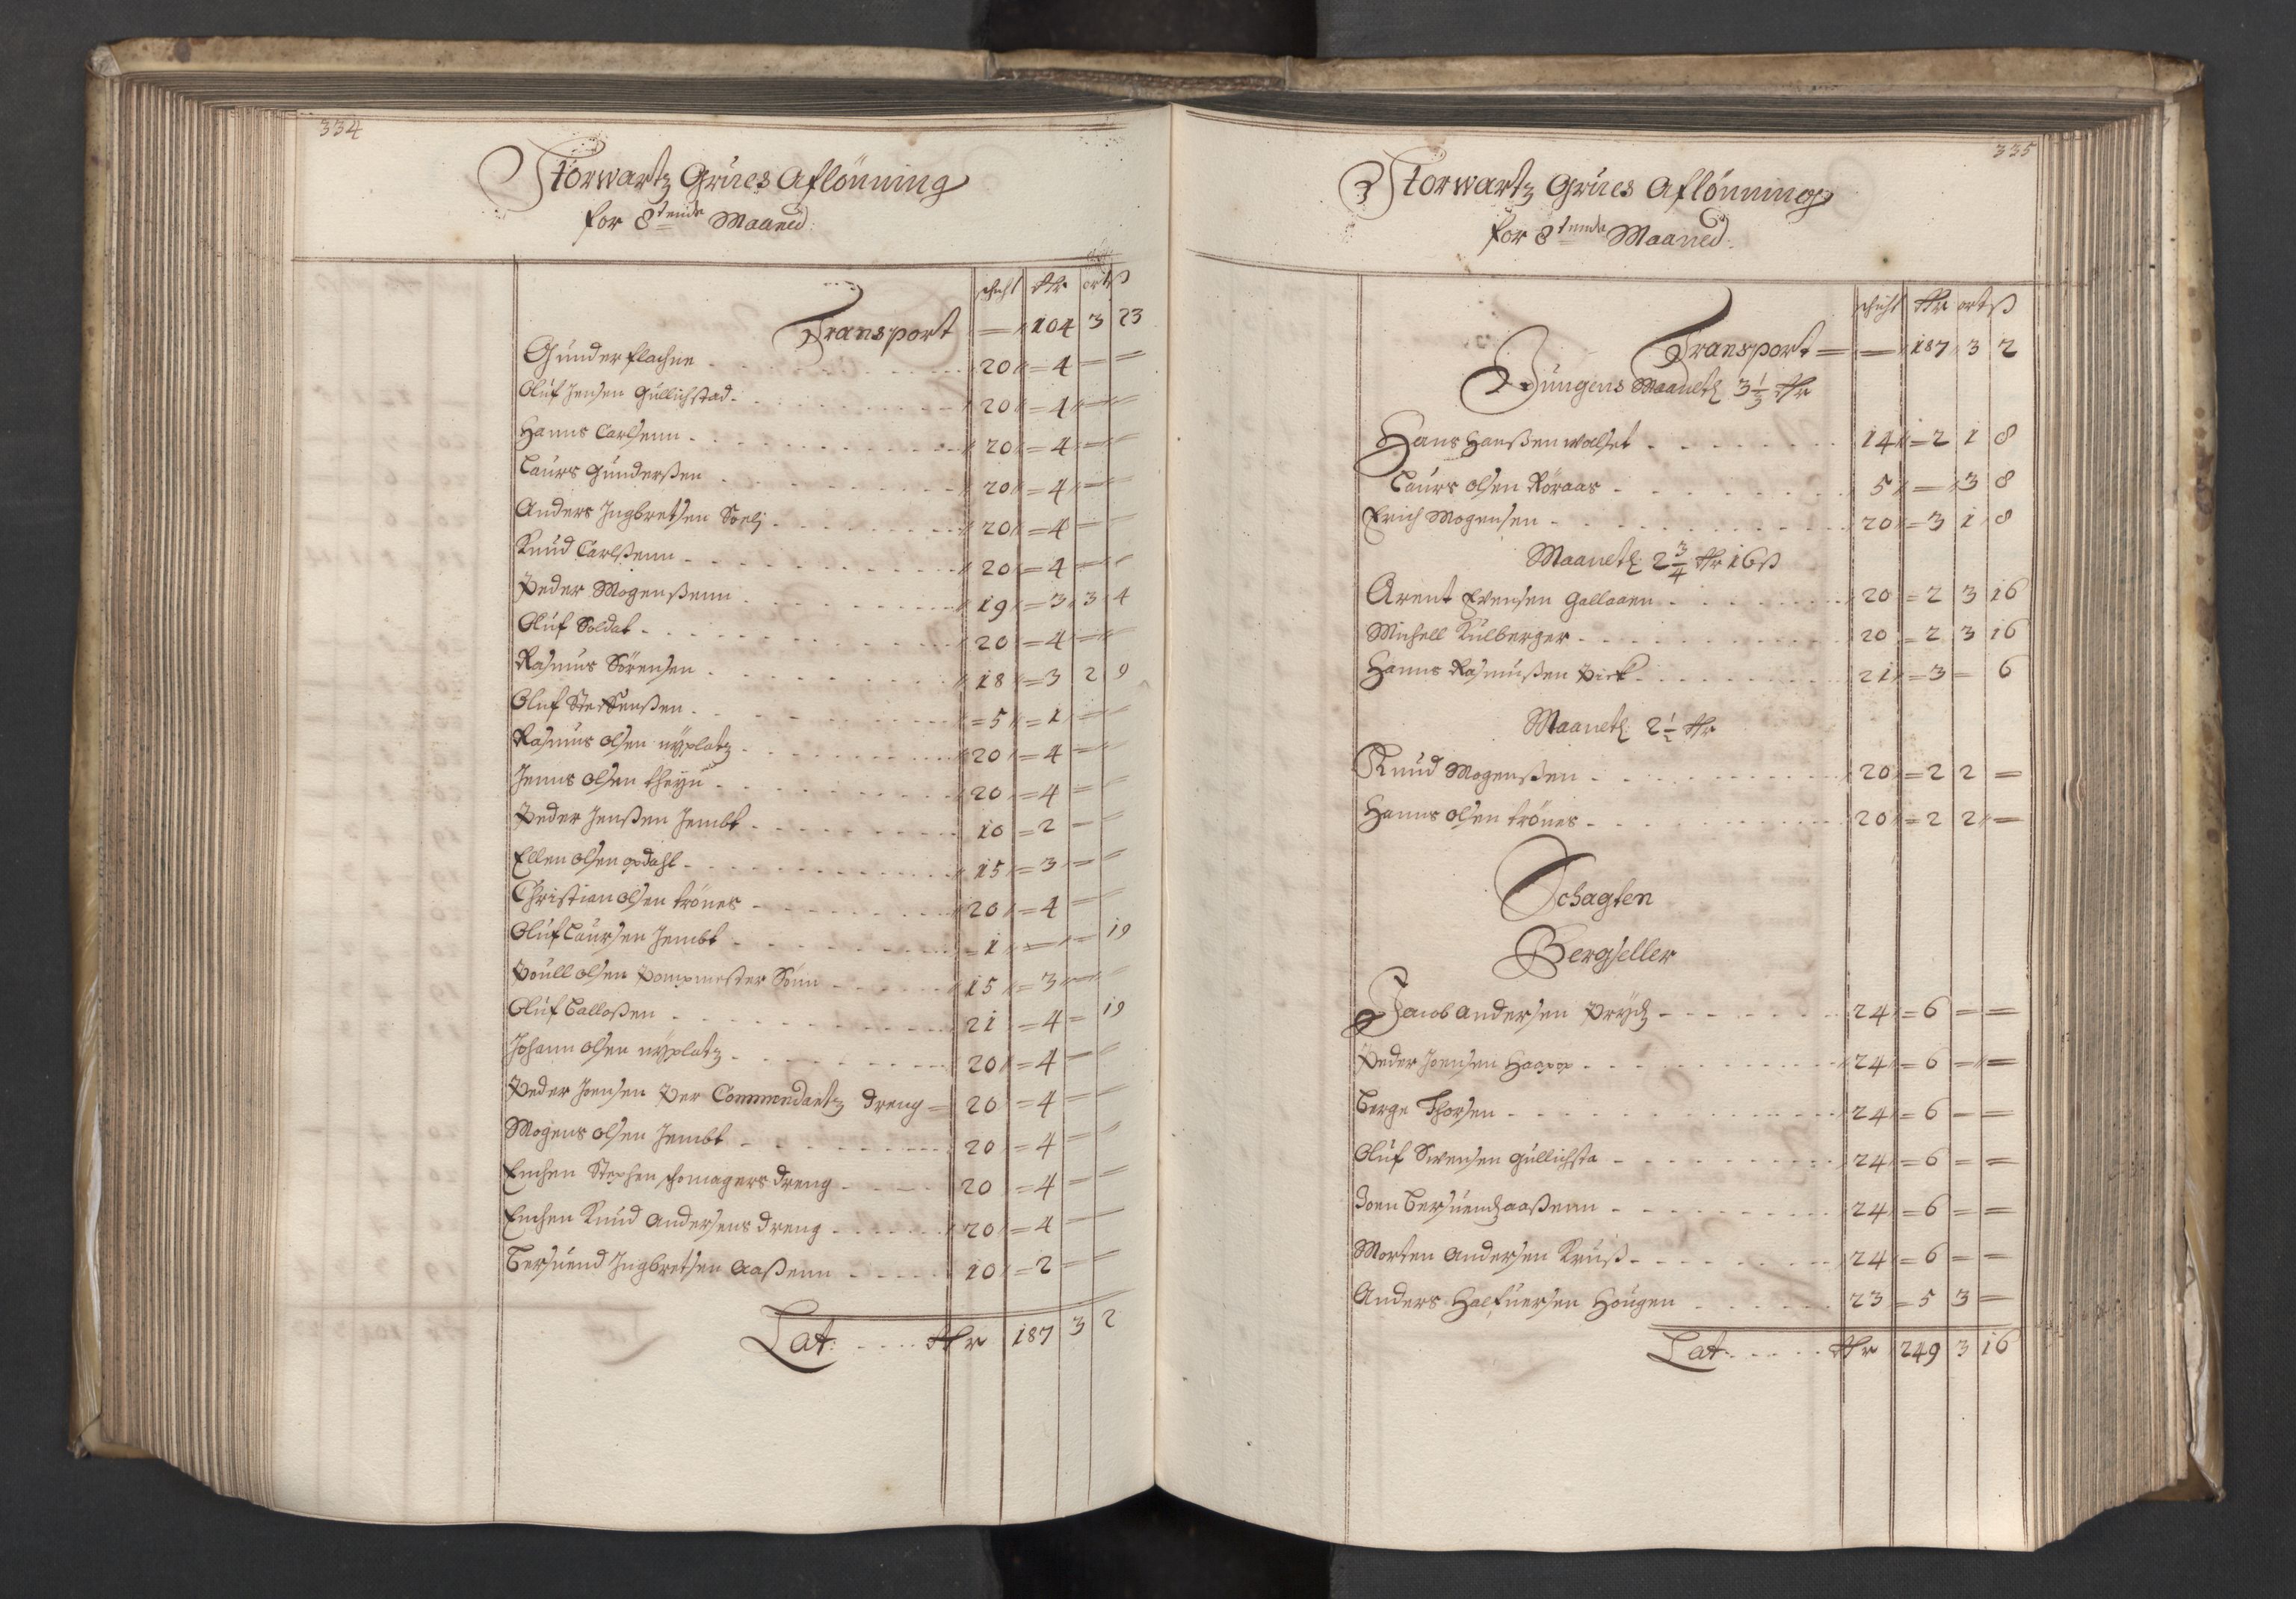 334
Storwartz Grües Aflönning
for 8tende Maaned:
schicht Rdr ort ß
Transport — 104 3 23
Gunder flachne 20 4 — —
Oluf Jensen Gullichstad 20 4 — —
Hanns Carlsenn 20 4 — —
Laurs Gunderßen 20 4 — —
Anders Ingbretsen Soelj 20 4 — —
Knud Carlßenn 20 4 — —
Peder Mogenßenn 19 3 3 4
Oluf Soldat 20 4 — —
Rasmus Sörensen 18 3 2 9
Oluf 5 1 — —
Rasmus Olsen nÿplatz 20 4 — —
Jenns Olsen theÿn 20 4 — —
Peder Jenßen Jembt 10 2 — —
Ellen Olsen opdahl 15 3 — —
Christian Olsen trönes 20 4 — —
Oluf Laursen Jembt 1 — — 19
Poull Olsen Pompmester Sönn 15 3 — —
Oluf Balloßen 21 4 — 19
Johann Olsen nÿplatz 20 4 — —
Peder Joensen Per Commendantz dreng 20 4 — —
Mogens Olsen Jembt 20 4 — —
Enchen Stephen schomagers dreng 20 4 — —
Enchen Knud Andersens dreng 20 4 — —
Bersuend Ingbretsen Aaßenn 10 2 — —
Lat: Rdr 187 3 2
335
Storwartz Grües Aflönning
for 8tende Maaned:
schicht Rdr ort ß
Transport — 187 3 2
Jungens Maanetl 3 1/3 Rdr
Hans Hanßen walset 14 2 1 8
Laurs Olsen Röraas 5 — 3 8
Erich Mogensen 20 3 1 8
Maanetl: 2 3/4 Rdr 16 ß
Arent Evensen Gallaaen 20 2 3 16
Michell Kulberger 20 2 3 16
Hanns Rasmußen Pirk 21 3 — 6
Maanetl: 2 1/2 Rdr
Knud Mogenßen 20 2 2 —
Hanns Olsen trönes 20 2 2 —
Schagten
Bergseller
Jacob Andersen Prÿdz 24 6 — —
Peder Joensen Haapp 24 6 — —
Berge Thorsen 24 6 — —
Oluf Swensen gullichsta 24 6 — —
Joen Bersuendzaaßenn 24 6 — —
Morten Andersen Kruß 24 6 — —
Anders Halfuersen Hougen 23 5 3 —
Lat: Rdr 249 3 16